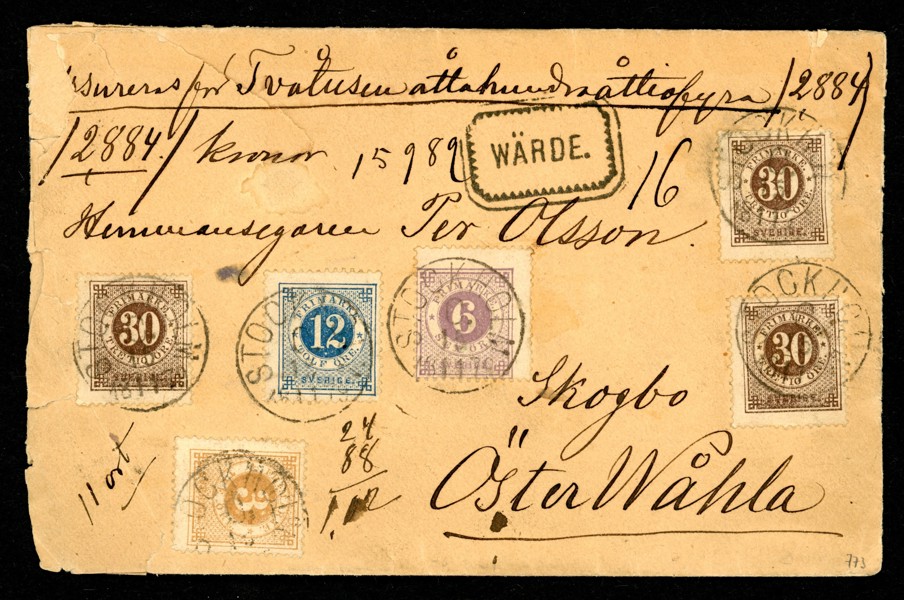 sureras för Tvåtusen åttahundraåttiofyra /2884/
/2884./ kronor 15989 WÄRDE. 16
Hemmansegaren Per Olsson.
FRIMÄRKE
30
TRETTIO ÖRE.
SVERIGE.
FRIMÄRKE
30
TRETTIO ÖRE.
STOCKHOLM
FRIMÄRKE
12
TOLF ÖRE.
SVERIGE.
STOCKHOLM
6
ÖRE
STOCKHOLM
FRIMÄRKE
30
TRETTIO ÖRE.
SVERIGE.
STOCKHOLM
Skogbo
Öster Wåhla
11 ort
24
88
3
STOCKHOLM
773